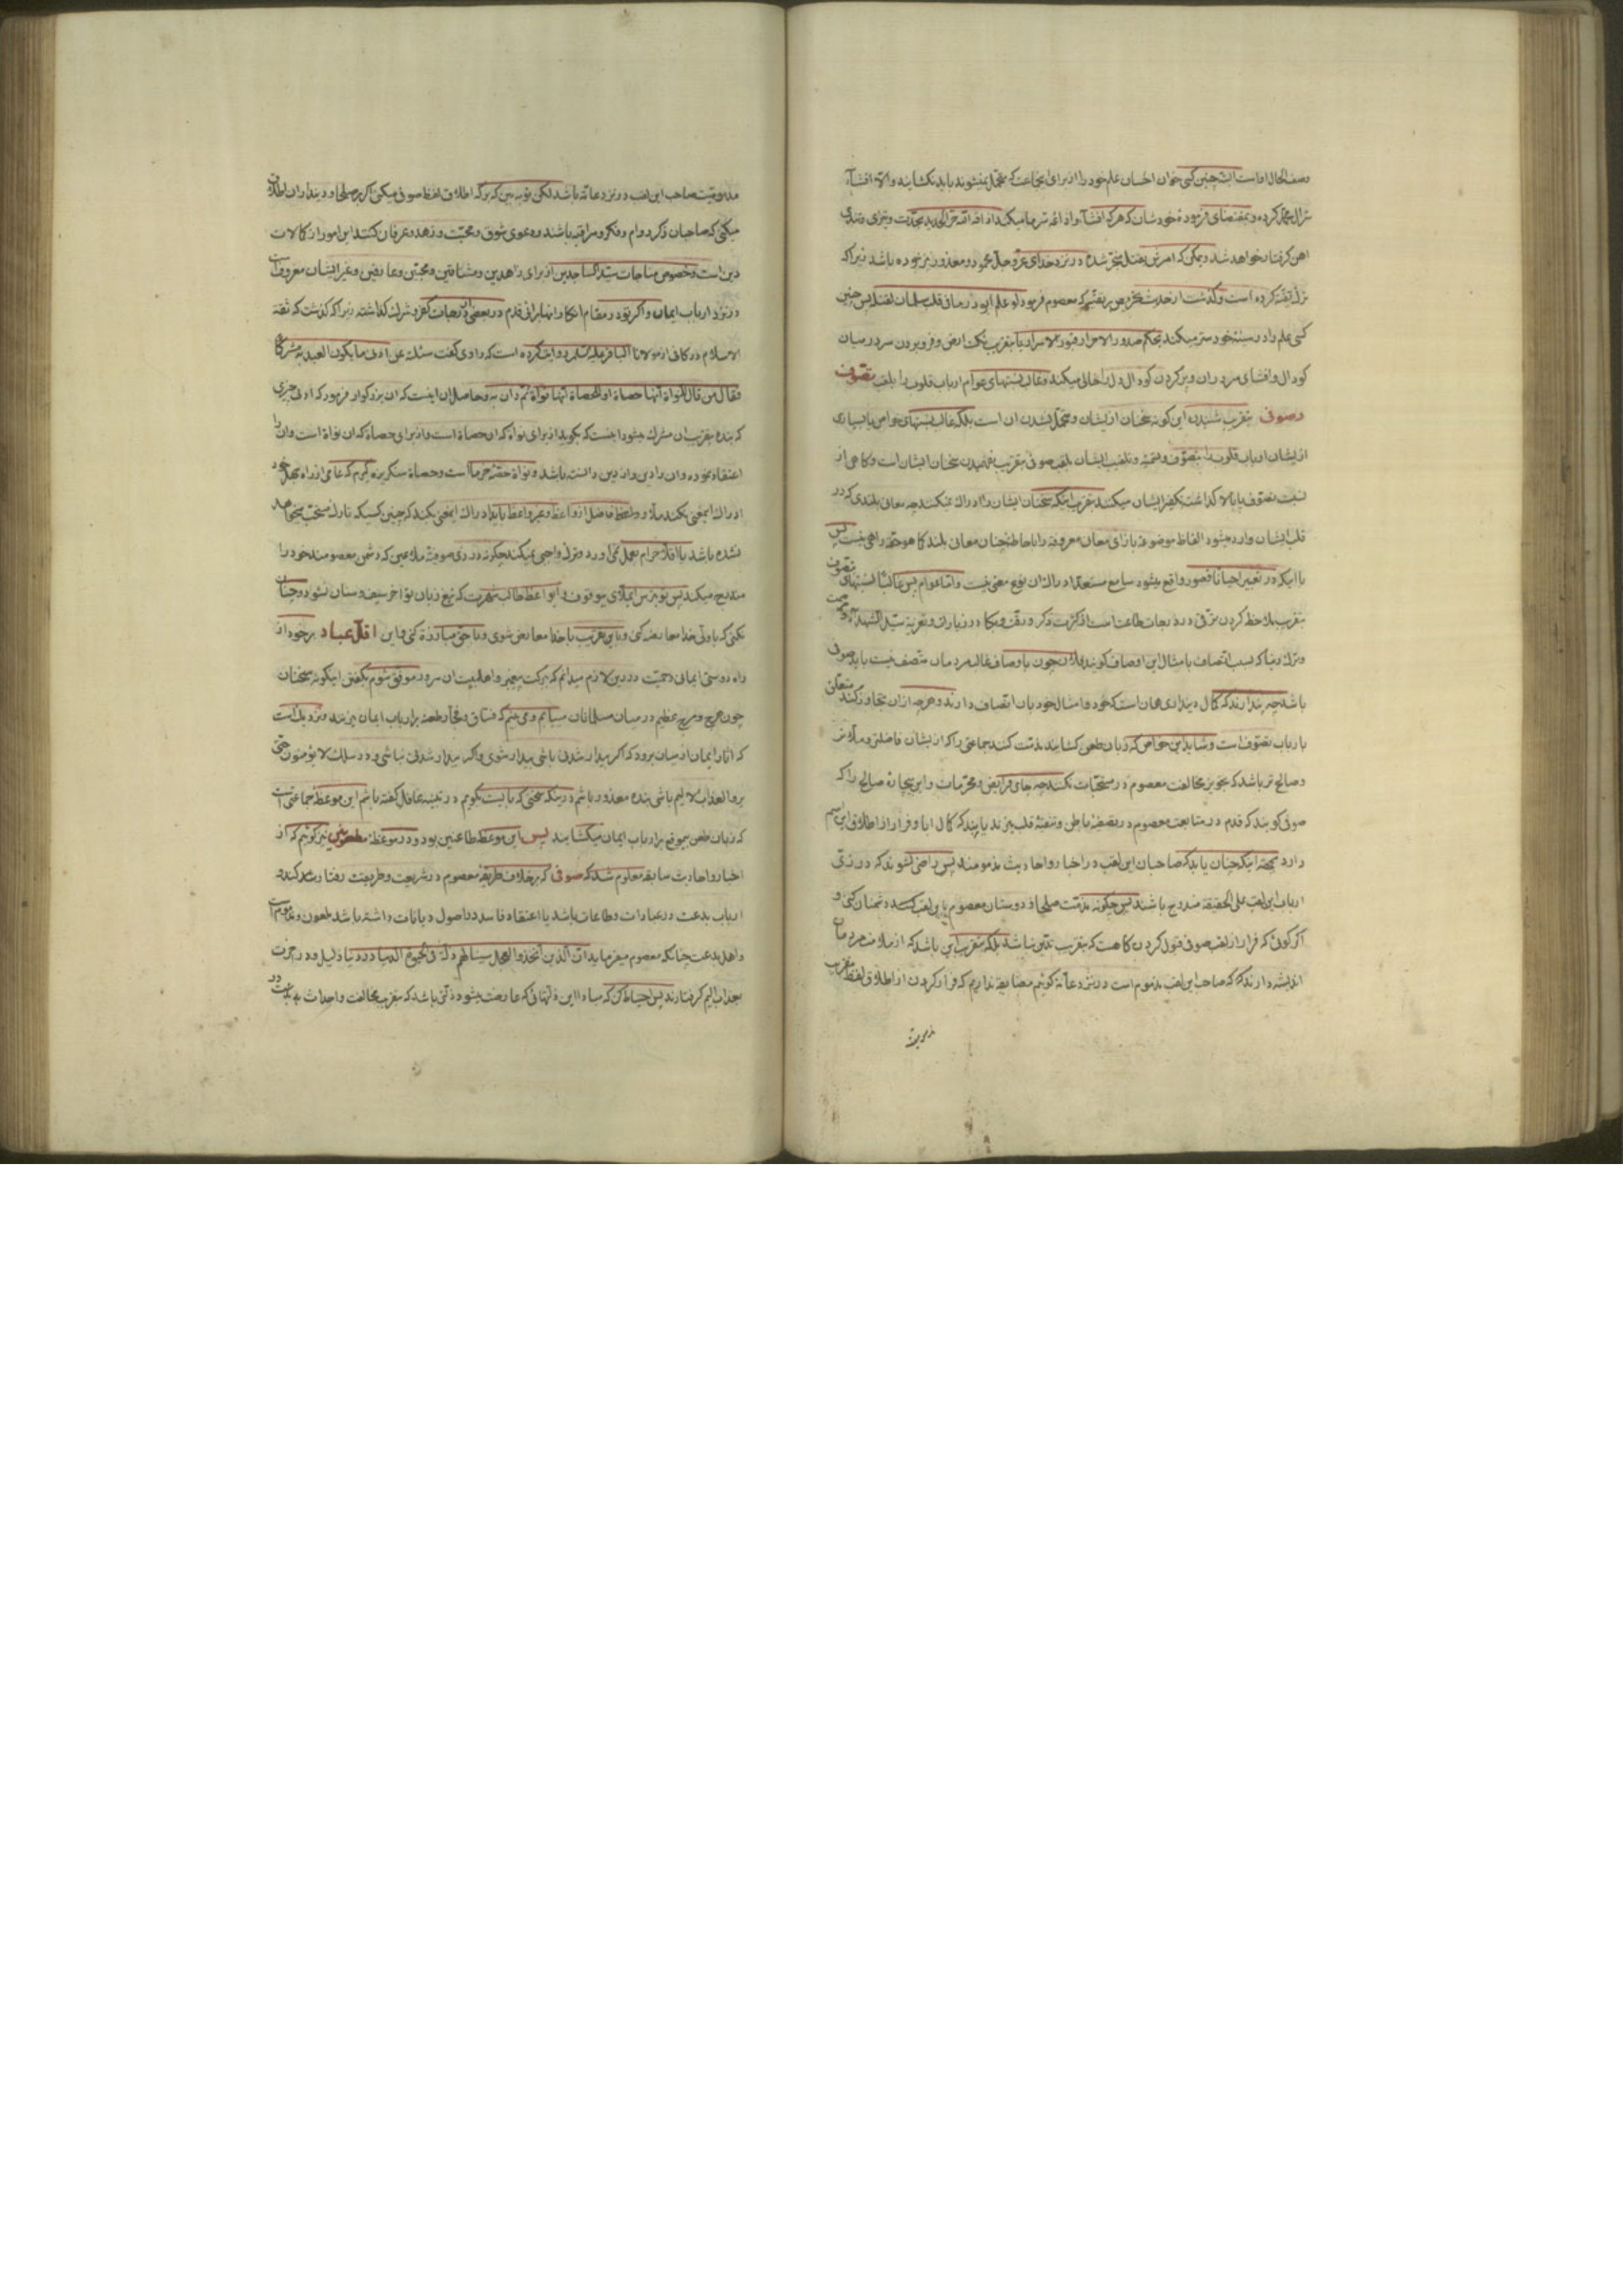 وصف الحال اوست البته چنین کسی خوان احسان علم خود را از برای جماعت که متحمل نمیشوند باید نکشاید والا افشاء
سر آل محمد کرده و بمقتضای فرموده خودشان که هر که افشاء و اذاعه سر ما میکند اذاقه الله حر الحدید بحدت و تیزی و تندی
اهن گرفتار خواهد شد و ممکن که امرش بقتل منجر شده در نزد خدای عز و جل محمود و معذور نیز نبوده باشد زیرا که
ترک تقیه کرده است و گذشت از حدیث تحریص بر تقیه که معصوم فرمود لو علم ابوذر ما فی قلب سلمان لقتله پس چنین
کسی علم را در سینه خود ستر میکند بحکم صدور الاحرار قبور الاسرار یا بتقریب نکت ارض و فرو بردن سر در میان
کودال و افشای سر در ان و پر کردن کودال دل را خالی میکند و غالب نسبتهای عوام ارباب قلوب را بلقب تصوف
و صوفی بتقریب شنیدن این کونه سخنان از ایشان و متحمل نشدن ان است بلکه غالب نسبتهای خواص یا بسیاری
از ایشان ارباب قلوب را بتصوف و تسمیه و تلقیب ایشان بلقب صوفی بتقریب نفهمیدن سخنان ایشان است و کاهی از
نسبت تصوف پا بالا گذاشته تکفیر ایشان میکنند بتقریب اینکه سخنان ایشان را ادراک نمیکنند چه معانی بلندی که در
قلب ایشان وارد میشود الفاظ موضوعه بازای معان معروفه را باحاطه چنان معان بلند کما هو حقه راهی نیست پس
یا اینکه در تعبیر احیانا قصور واقع میشود سامع مستعد ادراک ان نوع معنی نیست واما عوام پس غالبا نسبتهای تصوف
بتقریب ملاحظه کردن ترقی در درجات طاعت است از کثرت ذکر و رقت و بکا در زیارات و تعزیه سید الشهدا
و ترک دنیا که بسبب اتصاف بامثال این اوصاف کویند فلان چون باوصاف غالب مردمان متصف نیست باید صوفی
باشد چه پندارند که کمال دینداری همان است که خود و امثال خود بان اتصاف دارند و هر چه از ان تجاوز کند متعلق
بارباب تصوف است و شاید این خواص که زبان طعن کشایند مذمت کنند جماعتی را که از ایشان فاضلتر و ملاتر
و صالح تر باشد که تجویز مخالفت معصوم در مستحبات نکند چه جای فرایض و محرمات و این بیچاره صالح را که
صوفی کویند که قدم در متابعت معصوم در تصفیه باطن و تنقیه قلب میزند یابند که کمال ابا و فرار از اطلاق این اسم
دارد بجهت اینکه چنان یابد که صاحبان این لقب در اخبار و احادیث مذمومند پس راضی نشوند که در زی
ارباب این لقب علی الحقیقه مندرج باشند پس چکونه مذمت صلحا و دوستان معصوم باین لقب کسد دشمنان کنی و
اکر کوئی که فرار از لقب صوفی قبول کردن کاهست که بتقریب تدین نباشد بلکه بتقریب این باشد که از ملامت مردمان
اندیشه دارند که صاحب این لقب مذموم است در نزد عامه کوئیم مضایقه نداریم که فرار کردن از اطلاق لفظ بتقریب
مذمومیت
مذمومیت صاحب این لقب در نزد عامه باشد لکن تو به بین که بر که اطلاق لفظ صوفی میکنی اکر بر صلحا و دینداران اطلاق
میکنی که صاحبان ذکر دوام و فکر و مراقبه باشند و دعوی شوق و محبت و زهد و عرفان کنند این امور از کمالات
دین است و خصوص مناجات سید الساجدین از برای زاهدین و مشتاقین و محبین و عارفین و غیر ایشان معروف است
در نزد ارباب ایمان و اکر تو در مقام انکار انها برائی قدم در بعضی از درجات کفر و شرک گذاشته زیرا که گذشت که ثقة
الاسلام در کافی از مولانا الباقر علیه السلام روایت کرده است که راوی گفت سئلته عن ادنی ما یکون العبد به مشرکا
فقال من قال للنواة انها حصاة او للحصاة انها نواة ثم دان به و حاصل ان اینست که ان بزرکوار فرمود که ادنی چیزی
که بنده بتقریب ان مشرک میشود اینست که بکوید از برای نواة که ان حصاة است و از برای حصاة که ان نواة است و ان را
اعتقاد نموده و ان را دین و از دین دانسته باشد و نواة حصه خرما است و حصاة سنکریزه گیرم که عامی از راه جهل خود
ادراک اینمعنی نکند ملا و واعظ فاضل از واعظ و غیر واعظ باید ادراک اینمعنی بکند که چنین کسیکه تارک مستحب
نشده باشد یا اقلا حرام بعمل نمی آورد و ترک واجبی نمیکند چکونه در زی صوفیه ملاعین که دشمن معصومند خود را
مندرج میکند پس تو بترس ایملای بیوقوف و ایواعظ طالب شهرت که تیغ زبان تو اخر سیف و سنان نشود و چنان
نکنی که با ولی خدا معارضه کنی و باین تقریب با خدا معارض شوی و با حق مبارزه کنی و این اقل عباد بر خود از
راه دوستی ایمانی و حمیت در دین لازم میدانم که ببرکت پیغمبر و اهلبیت ان سرور موفق شوم بگفتن اینکونه سخنان
چون هرج و مرج عظیم در میان مسلمانان مییابم و می بینم که فساق و فجار طعنه بر ارباب ایمان میزنند و نزدیک است
که اثار ایمان از میان برود که اکر بیدار شدنی باشی بیدار شوی واکر بیدار شدنی نباشی و در سلک لا یؤمنون حتی
یروا العذاب الالیم باشی بنده معذور باشم در اینکه سخنی که بایست بکویم در تنبیه غافل گفته باشم این موعظه جماعتی است
که زبان طعن بیموقع بر ارباب ایمان میکشایند پس این موعظه طاعنین بود و در موعظه مطعونین نیز کوئیم که از
اخبار و احادیث سابقه معلوم شد که صوفی که بر خلاف طریقه معصوم در شریعت و طریقت رفتار کند
ارباب بدعت در عبادات و طاعات باشد یا اعتقاد فاسد در اصول دیانات داشته باشد ملعون و مذموم است
و اهل بدعت چنانکه معصوم میفرماید ان الذین اتخذوا العجل سینالهم ذلة فی الحیوة الدنیا در دنیا ذلیل و در اخرت
بعذاب الیم گرفتارند پس احتیاط کن که مبادا این ذلتهائی که عارضت میشود ذلتی باشد که بتقریب مخالفت و احداث بدعت در